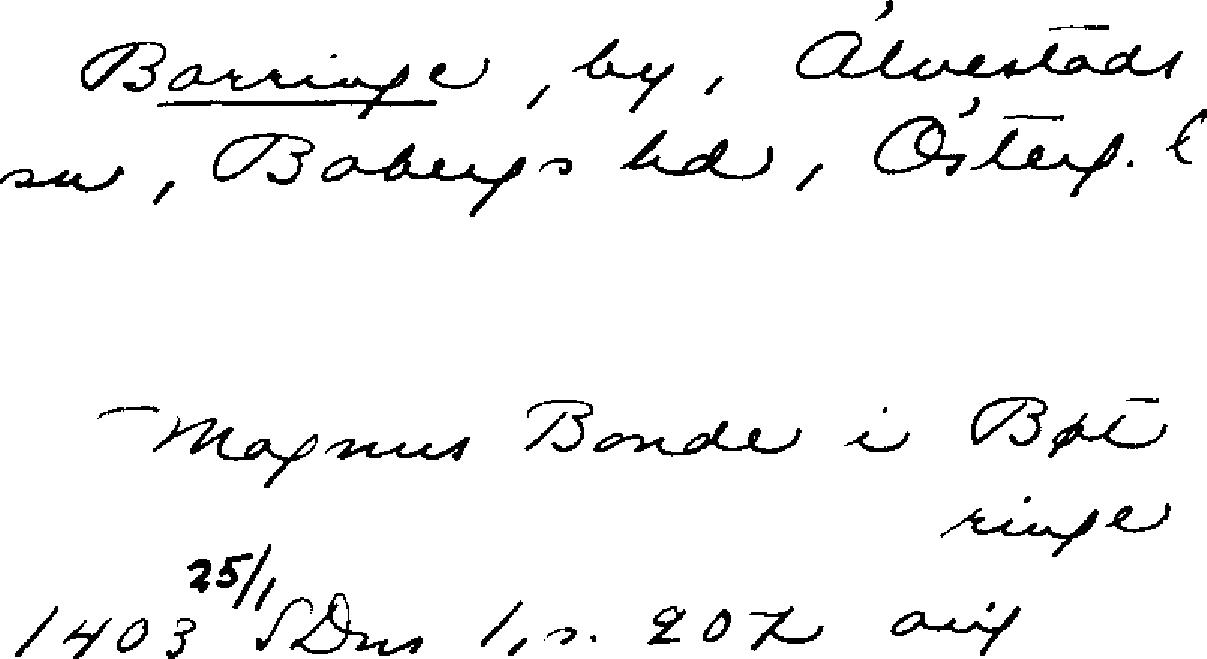 Barringe, by, Älvestads
sn, Bobergs hd, Österg. l
Magnus Bonde i Bøt
ringe
1403 25/1 SDns 1, s. 207 avig